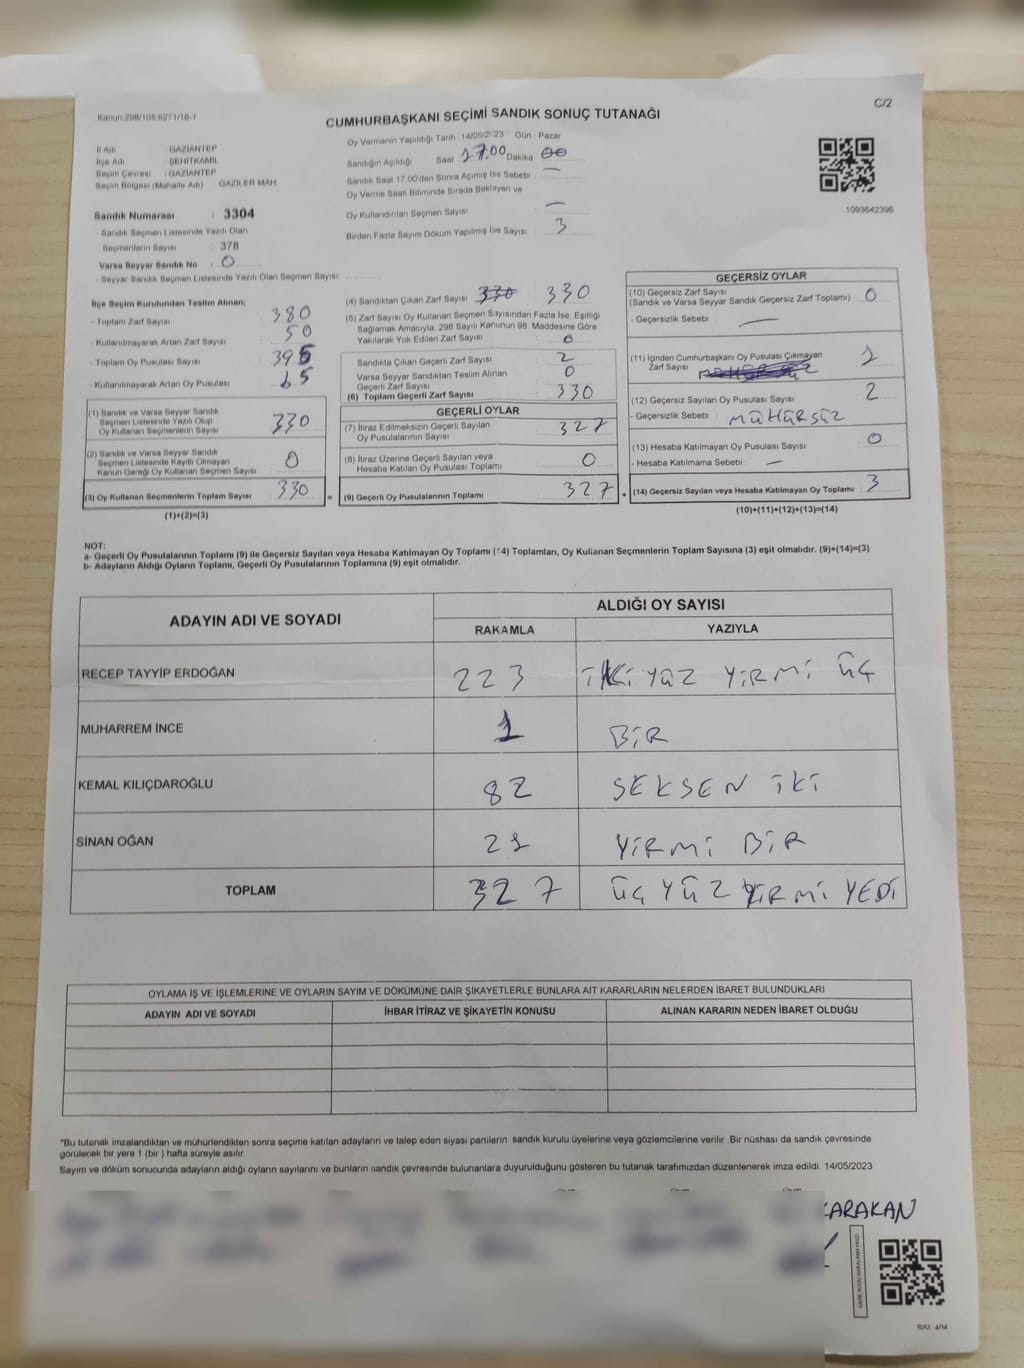 Kanun:298/105,6271/18-1
CUMHURBAŞKANI SEÇİMİ SANDIK SONUÇ TUTANAĞI
C/2
İl Adı : GAZİANTEP
İlçe Adı : ŞEHİTKAMİL
Seçim Çevresi : GAZİANTEP
Seçim Bölgesi (Mahalle Adı) GAZİLER MAH.
Sandık Numarası : 3304
- Sandık Seçmen Listesinde Yazılı Olan
Seçmenlerin Sayısı : 378
Varsa Seyyar Sandık No : 0
- Seyyar Sandık Seçmen Listesinde Yazılı Olan Seçmen Sayısı:
Oy Vermenin Yapıldığı Tarih :14/05/2023 Gün : Pazar
Sandığın Açıldığı Saat 17.00 Dakika 00
Sandık Saat 17:00'den Sonra Açılmış İse Sebebi —
Oy Verme Saati Bitiminde Sırada Bekleyen ve
Oy Kullandırılan Seçmen Sayısı —
Birden Fazla Sayım Döküm Yapılmış İse Sayısı 3
1093642396
İlçe Seçim Kurulundan Teslim Alınan;
- Toplam Zarf Sayısı : 380
- Kullanılmayarak Artan Zarf Sayısı : 50
- Toplam Oy Pusulası Sayısı : 395
- Kullanılmayarak Artan Oy Pusulası : 65
(1) Sandık ve Varsa Seyyar Sandık
Seçmen Listesinde Yazılı Olup
Oy Kullanan Seçmenlerin Sayısı : 330
(2) Sandık ve Varsa Seyyar Sandık
Seçmen Listesinde Kayıtlı Olmayan
Kanun Gereği Oy Kullanan Seçmen Sayısı : 0
(3) Oy Kullanan Seçmenlerin Toplam Sayısı : 330
(1)+(2)=(3)
(4) Sandıktan Çıkan Zarf Sayısı : 330 330
(5) Zarf Sayısı Oy Kullanan Seçmen Sayısından Fazla İse, Eşitliği
Sağlamak Amacıyla, 298 Sayılı Kanunun 98. Maddesine Göre
Yakılarak Yok Edilen Zarf Sayısı : 0
Sandıkta Çıkan Geçerli Zarf Sayısı : 2
Varsa Seyyar Sandıktan Teslim Alınan
Geçerli Zarf Sayısı : 0
(6) Toplam Geçerli Zarf Sayısı : 330
GEÇERLİ OYLAR
(7) İtiraz Edilmeksizin Geçerli Sayılan
Oy Pusulalarının Sayısı : 327
(8) İtiraz Üzerine Geçerli Sayılan veya
Hesaba Katılan Oy Pusulası Toplamı : 0
= (9) Geçerli Oy Pusulalarının Toplamı : 327 +
GEÇERSİZ OYLAR
(10) Geçersiz Zarf Sayısı
(Sandık ve Varsa Seyyar Sandık Geçersiz Zarf Toplamı) : 0
- Geçersizlik Sebebi : —
(11) İçinden Cumhurbaşkanı Oy Pusulası Çıkmayan
Zarf Sayısı : 1
(12) Geçersiz Sayılan Oy Pusulası Sayısı : 2
- Geçersizlik Sebebi : MÜHÜRSÜZ
(13) Hesaba Katılmayan Oy Pusulası Sayısı : 0
- Hesaba Katılmama Sebebi : —
(14) Geçersiz Sayılan veya Hesaba Katılmayan Oy Toplamı : 3
(10)+(11)+(12)+(13)=(14)
NOT:
a- Geçerli Oy Pusulalarının Toplamı (9) ile Geçersiz Sayılan veya Hesaba Katılmayan Oy Toplamı (14) Toplamları, Oy Kullanan Seçmenlerin Toplam Sayısına (3) eşit olmalıdır. (9)+(14)=(3)
b- Adayların Aldığı Oyların Toplamı, Geçerli Oy Pusulalarının Toplamına (9) eşit olmalıdır.
ADAYIN ADI VE SOYADI ALDIĞI OY SAYISI
RAKAMLA YAZIYLA
RECEP TAYYİP ERDOĞAN 223 İKİ YÜZ YİRMİ ÜÇ
MUHARREM İNCE 1 BİR
KEMAL KILIÇDAROĞLU 82 SEKSEN İKİ
SİNAN OĞAN 21 YİRMİ BİR
TOPLAM 327 ÜÇ YÜZ YİRMİ YEDİ
OYLAMA İŞ VE İŞLEMLERİNE VE OYLARIN SAYIM VE DÖKÜMÜNE DAİR ŞİKAYETLERLE BUNLARA AİT KARARLARIN NELERDEN İBARET BULUNDUKLARI
ADAYIN ADI VE SOYADI İHBAR İTİRAZ VE ŞİKAYETİN KONUSU ALINAN KARARIN NEDEN İBARET OLDUĞU
*Bu tutanak imzalandıktan ve mühürlendikten sonra seçime katılan adayların ve talep eden siyasi partilerin sandık kurulu üyelerine veya gözlemcilerine verilir .Bir nüshası da sandık çevresinde
görülecek bir yere 1 (bir ) hafta süreyle asılır.
Sayım ve döküm sonucunda adayların aldığı oyların sayılarını ve bunların sandık çevresinde bulunanlara duyurulduğunu gösteren bu tutanak tarafımızdan düzenlenerek imza edildi. 14/05/2023
KARAKAN